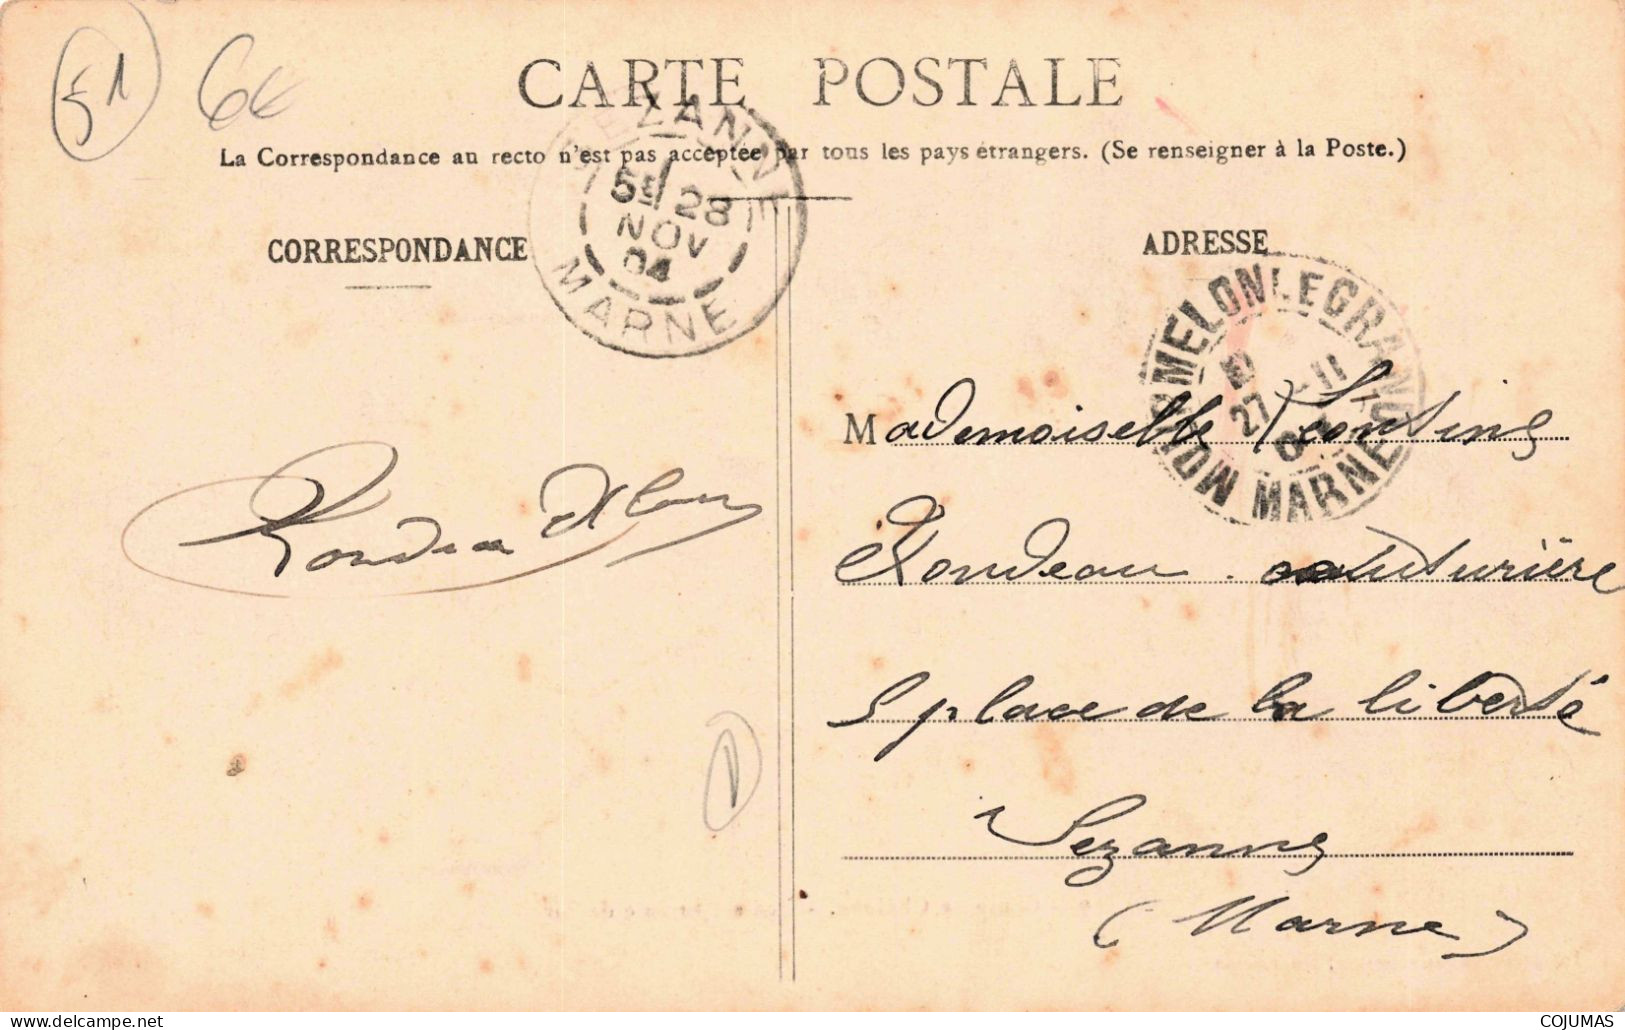 51
6€
CARTE POSTALE
La Correspondance au recto n'est pas acceptée par tous les pays étrangers. (Se renseigner à la Poste.)
SEZANNE
5E 28
NOV
04
MARNE
CORRESPONDANCE
ADRESSE
MOURMELON LE GRAND
27 - 11
04
MARNE
Mademoiselle Léontine
Rondeau couturière
5 place de la liberté
Sezanne
(Marne)
Rondeau
1
COJUMAS